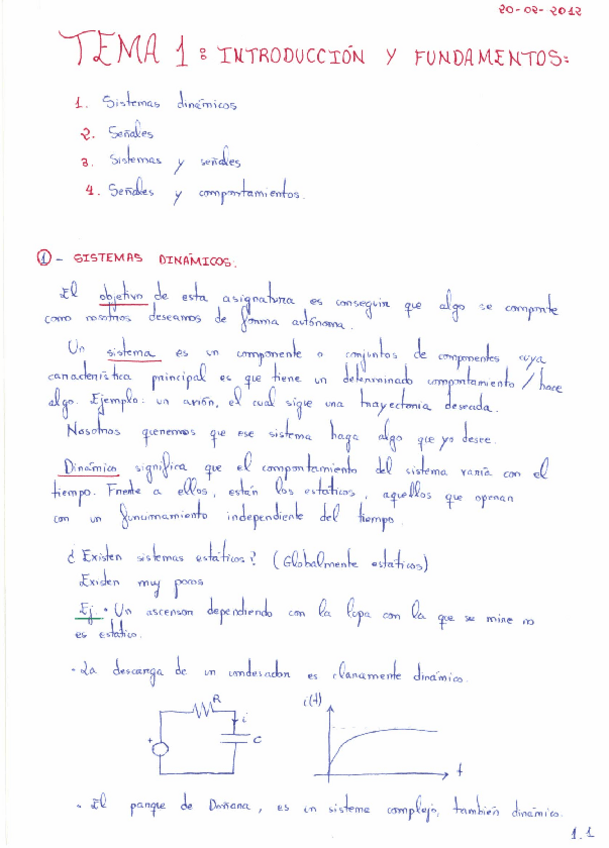 20-02-2012
TEMA 1: INTRODUCCIÓN Y FUNDAMENTOS:
1. Sistemas dinámicos
2. Señales
3. Sistemas y señales
4. Señales y comportamientos.
1 - SISTEMAS DINÁMICOS.
El objetivo de esta asignatura es conseguir que algo se comporte
como nosotros deseamos de forma autónoma.
Un sistema es un componente o conjuntos de componentes cuya
característica principal es que tiene un determinado comportamiento / hace
algo. Ejemplo: un avión, el cual sigue una trayectoria deseada.
Nosotros queremos que ese sistema haga algo que yo desee.
Dinámico significa que el comportamiento del sistema varía con el
tiempo. Frente a ellos, están los estáticos, aquellos que operan
con un funcionamiento independiente del tiempo.
¿Existen sistemas estáticos? (Globalmente estáticos)
Existen muy pocos
Ej. • Un ascensor dependiendo con la lupa con la que se mire no
es estático.
• La descarga de un condesador es claramente dinámico.
R i(t)
i
+ C
t
• El parque de Doñana, es un sistema complejo, también dinámico.
1.1